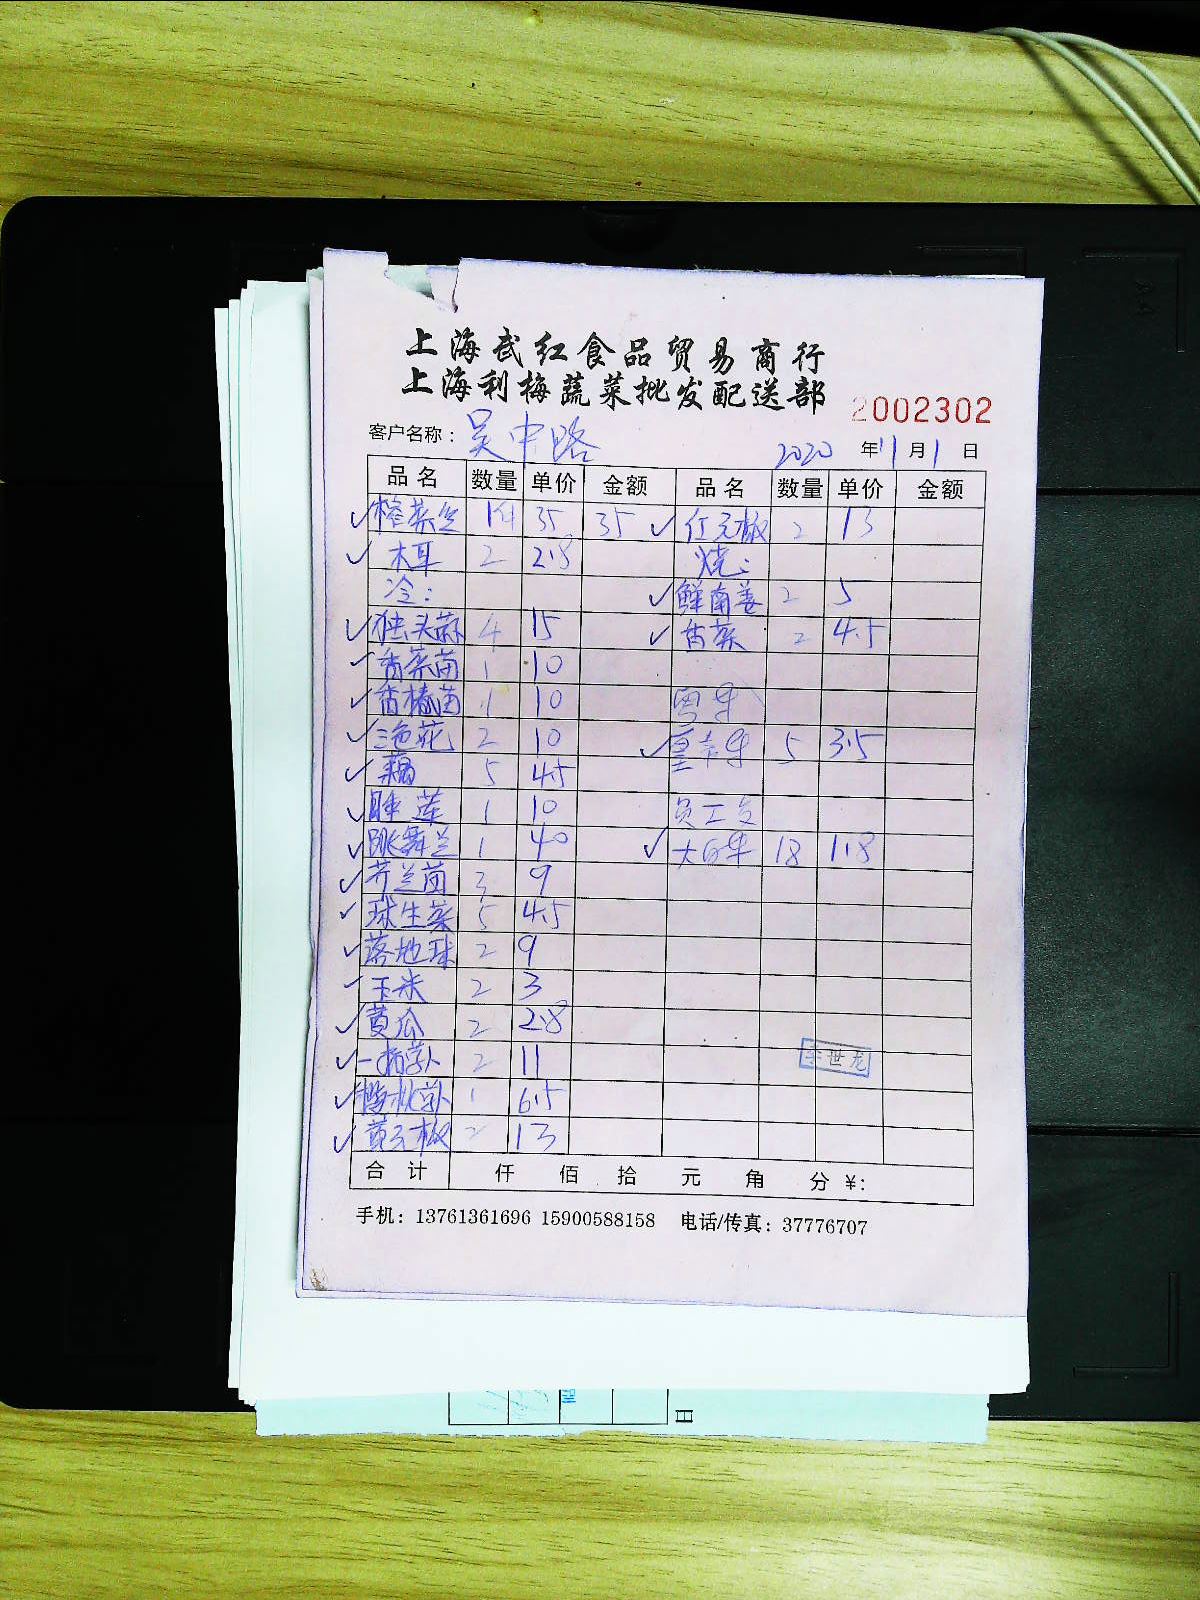 上海武红食品贸易商行
上海利梅蔬菜批发配送部
2002302
客户名称：吴中路 2020年11月1日
品名 数量 单价 金额 品名 数量 单价 金额
✓榨菜丝 1件 35 35 ✓红元椒 2 13
✓木耳 2 2.8 烧：
冷： ✓鲜南姜 2 5
✓独头蒜 4 15 ✓香菜 2 4.5
✓香菜苗 1 10
✓香椿苗 1 10
✓三色花 2 10 ✓ 5 3.5
✓藕 5 4.5
✓睡莲 1 10 员工
✓跳舞兰 1 40 ✓大白菜 18 1.8
✓芥兰苗 3 9
✓球生菜 5 4.5
✓落地球 2 9
✓玉米 2 3
✓黄瓜 2 2.8
✓ 2 11
✓樱桃萝卜 1 6.5
✓黄元椒 2 13
李世龙
合计 仟 佰 拾 元 角 分 ¥:
手机：13761361696 15900588158 电话/传真：37776707